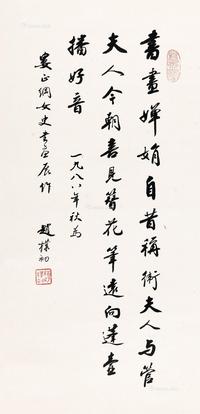 書畫嬋娟自昔稱衛夫人与管
夫人今朝喜見簪花筆遠向蓬壺
播好音
一九八八年秋為
婁正綱女史書画展作
趙樸初